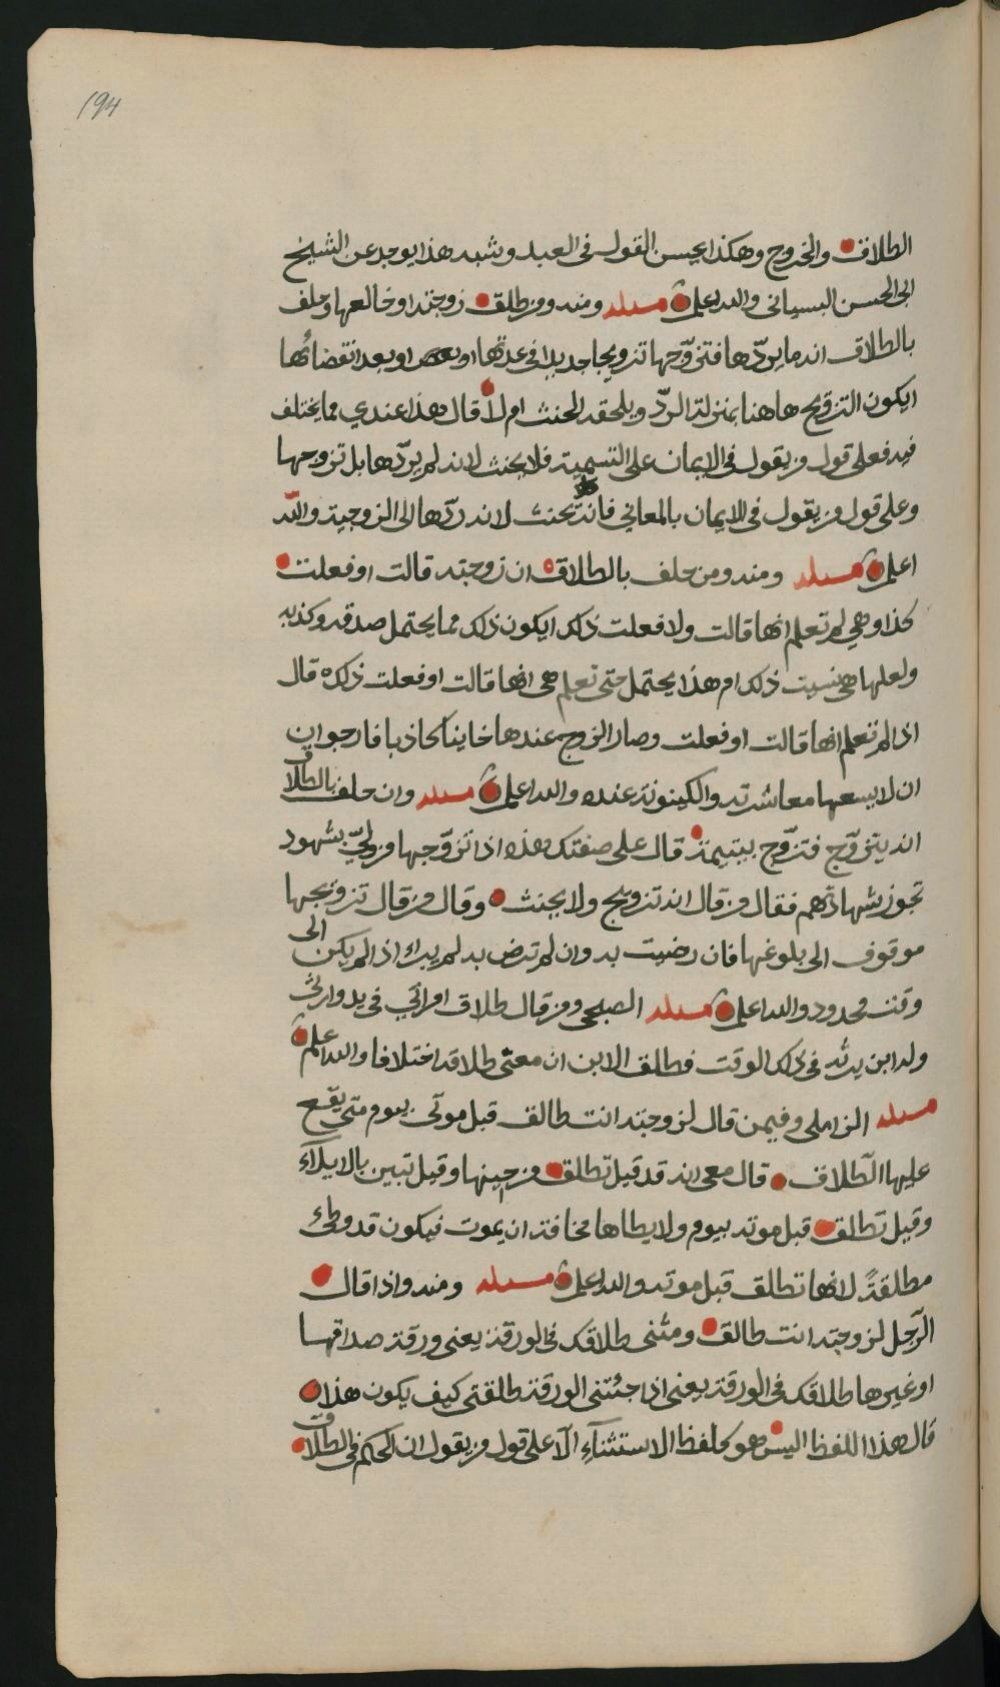 194
الطلاق والخروج وهكذا يحسن القول في العبد وشبه هذا يوجد عن الشيخ
ابي الحسن البسياني والله اعلم مسئلة ومنه ومن طلق زوجته او خالعها وحلف
بالطلاق انه ما يردّها فتزوّجها تزويجا جديدا في عدتها او بعد انقضائها
ايكون التزويج هاهنا بمنزلة الردّ ويلحقه الحنث ام لا قال هذا عندي مما يختلف
فيه فعلى قول من يقول في الايمان على التسمية فلا يحنث لانه لم يردّها بل تزوجها
وعلى قول من يقول في الايمان بالمعاني فانه يحنث لانه ردّها الى الزوجية والله
اعلم مسئلة ومنه ومن حلف بالطلاق ان زوجته قالت او فعلت
كذا وهي لم تعلم انها قالت ولا فعلت ذلك ايكون ذلك مما يحتمل صدقه وكذبه
ولعلها هي نسيت ذلك ام هذا يحتمل حتى تعلم هي انها قالت او فعلت ذلك قال
اذا لم تعلم انها قالت او فعلت وصار الزوج عندها خاينا كاذبا فارجو ان
ان لا يسعها معاشرته والكينونة عنده والله اعلم مسئلة وان حلف بالطلاق
انه يتزوّج فتزوّج بيتيمة قال على صفتك هذه اذا تزوّجها من وليّ بشهود
تجوز شهادتهم فقال من قال انه تزويج ولا يحنث وقال من قال تزويجها
موقوف الى بلوغها فان رضيت به وان لم ترض به لم يبراء اذا لم يكن الى
وقت محدود والله اعلم مسئلة الصبحي ومن قال طلاق امرأتي في يد وارثي
وله ابن يرثه في ذلك الوقت فطلق الابن ان معنى طلاقه اختلافا والله اعلم
مسئلة الزاملي وفيمن قال لزوجته انت طالق قبل موتي بيوم متى يقع
عليها الطّلاق قال معي انه قد قيل تطلق من حينها وقيل تبين بالايلآء
وقيل تطلق قبل موته بيوم ولا يطاها مخافة ان يموت فيكون قد وطئ
مطلقةً لانها تطلق قبل موته والله اعلم مسئلة ومنه واذا قال
الرّجل لزوجته انت طالق ومثنى طلاقك في الورقة يعني ورقة صداقها
او غيرها طلاقك في الورقة يعني اذا جئتني الورقة طلقتي كيف يكون هذا
قال هذا اللفظ اليس هو كلفظ الاستثنآء الّا على قول من يقول ان الحكم في الطلاق